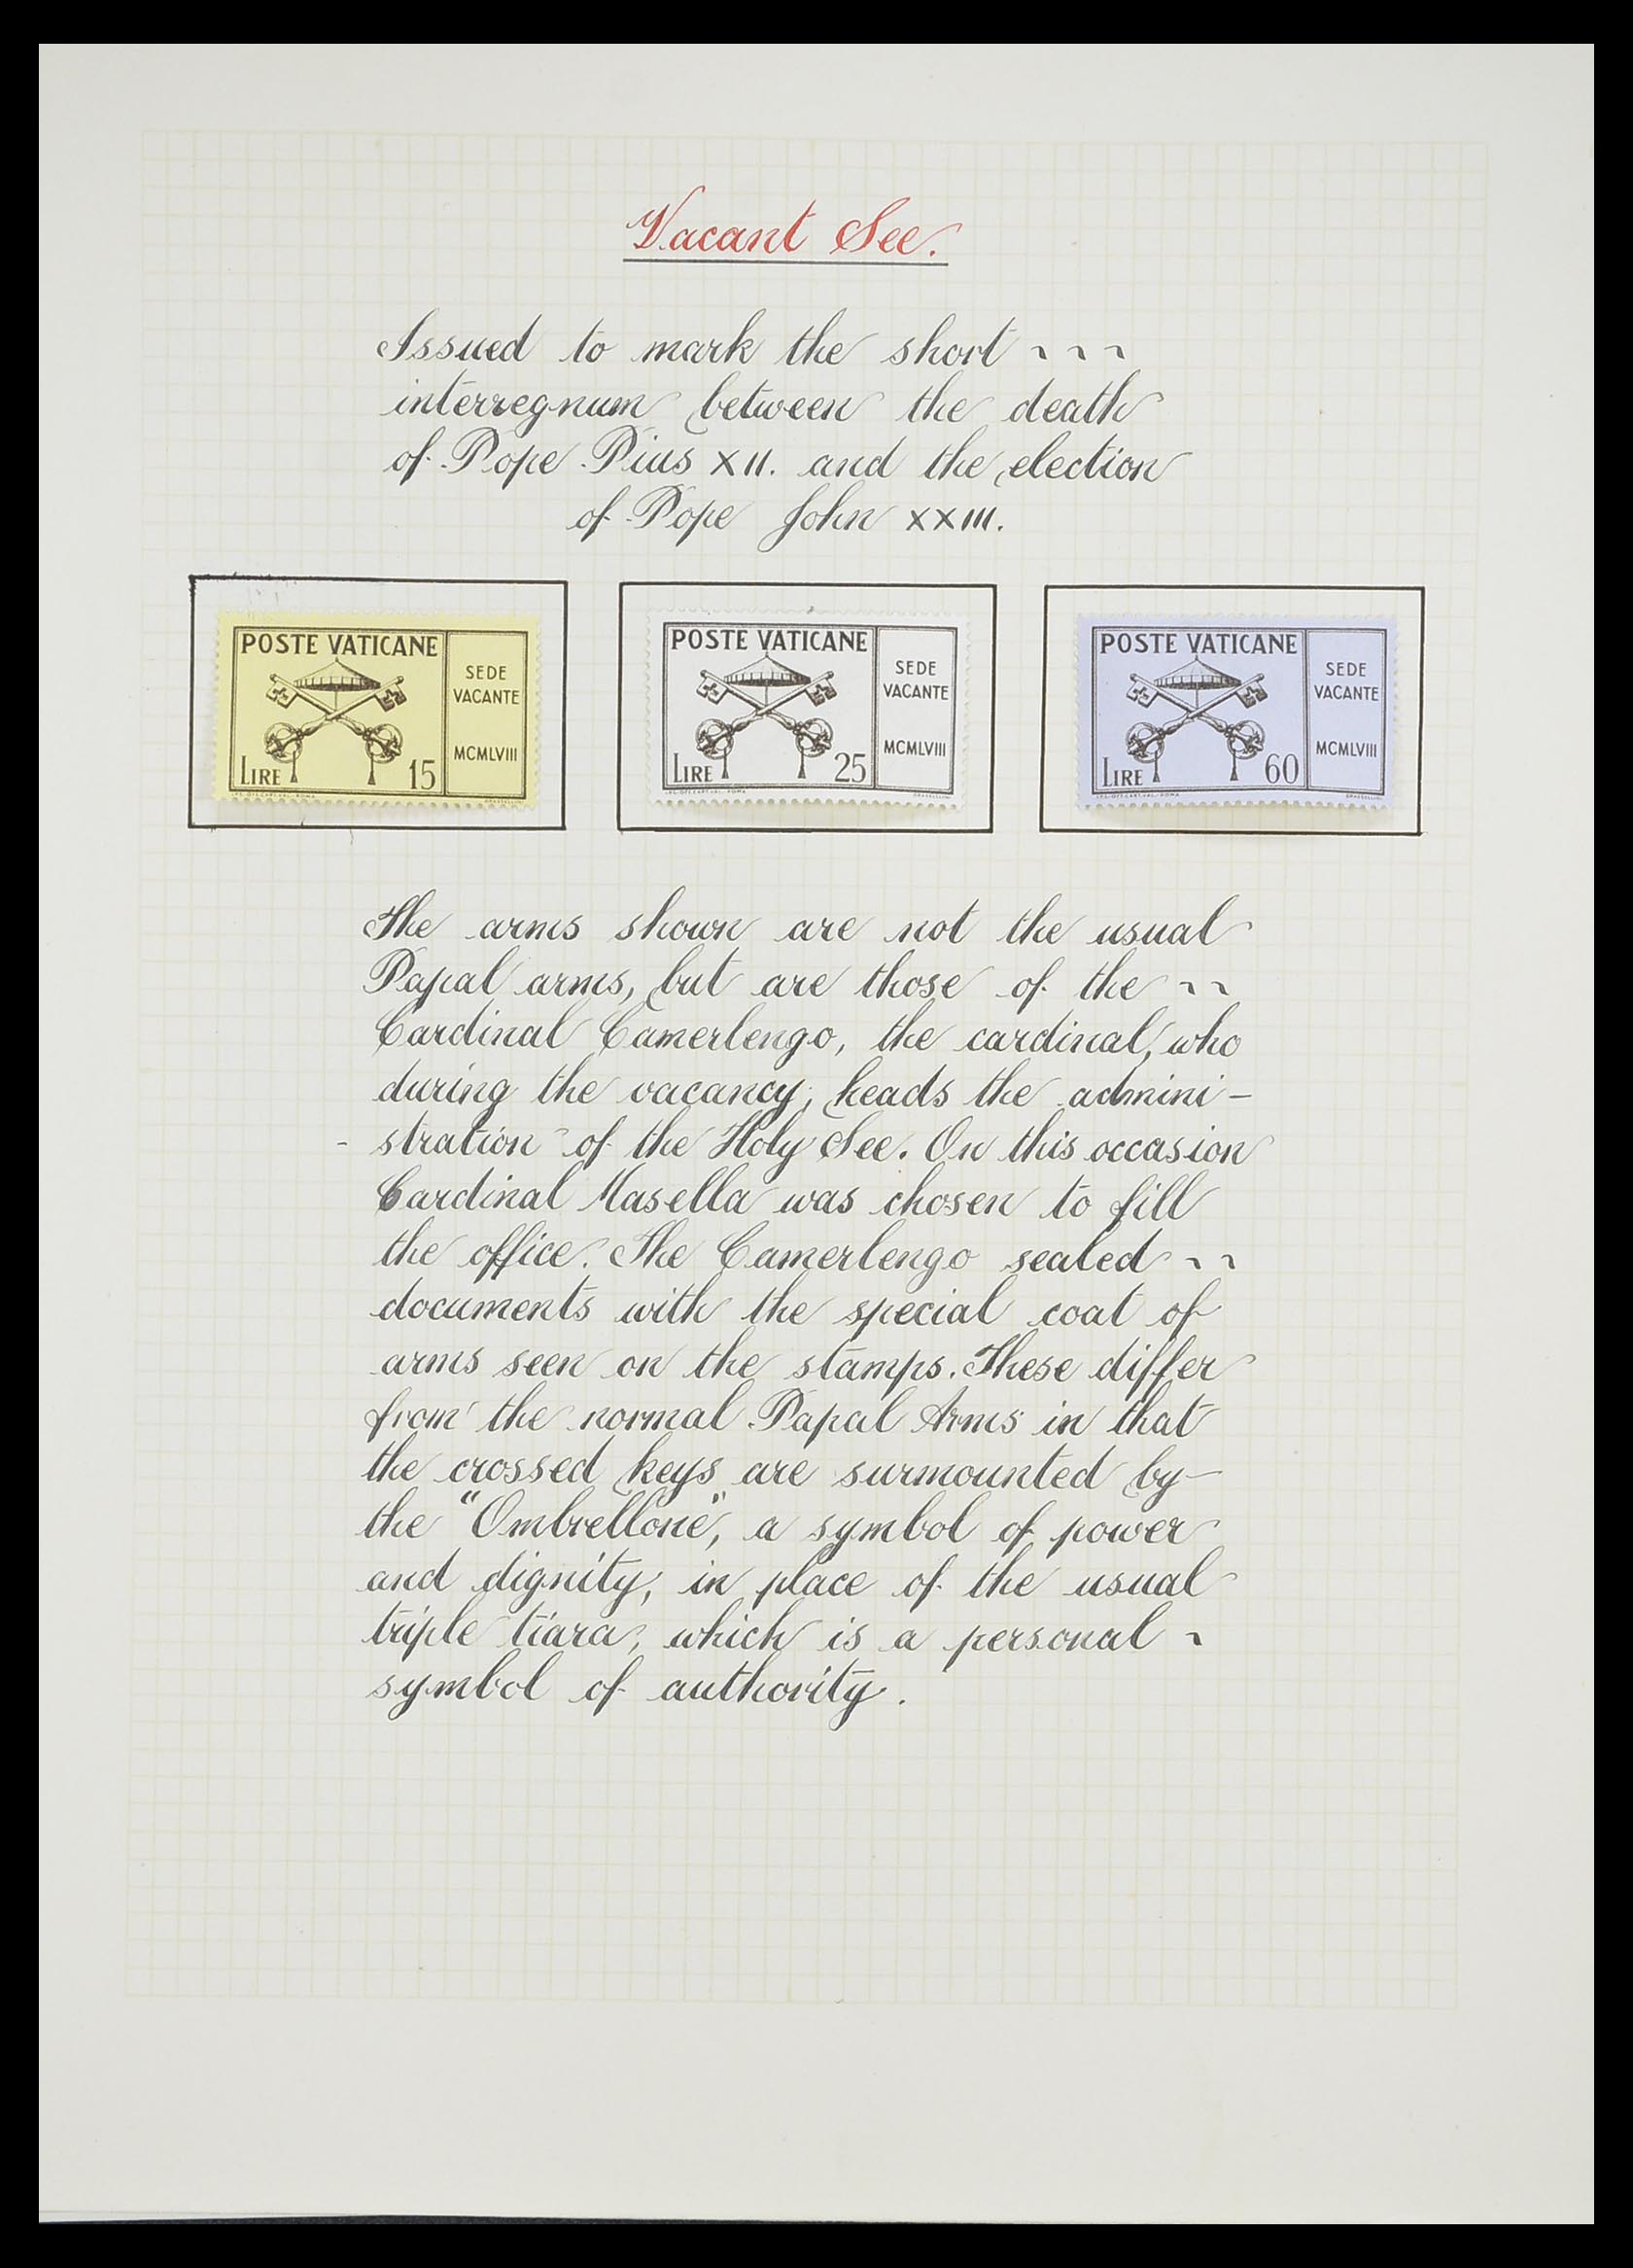 Vacant See.
Issued to mark the short ~ ~ ~
interregnum between the death
of Pope Pius XII. and the election
of Pope John XXIII.
POSTE VATICANE
SEDE
VACANTE
MCMLVIII
LIRE 15
POSTE VATICANE
SEDE
VACANTE
MCMLVIII
LIRE 25
POSTE VATICANE
SEDE
VACANTE
MCMLVIII
LIRE 60
The arms shown are not the usual
Papal arms, but are those of the ~ ~
Cardinal Camerlengo, the cardinal, who
during the vacancy, heads the admini -
- stration of the Holy See. On this occasion
Cardinal Masella was chosen to fill
the office. The Camerlengo sealed ~ ~
documents with the special coat of
arms seen on the stamps. These differ
from the normal Papal Arms in that
the crossed keys are surmounted by
the "Ombrellone", a symbol of power
and dignity, in place of the usual
triple tiara, which is a personal ~
symbol of authority.